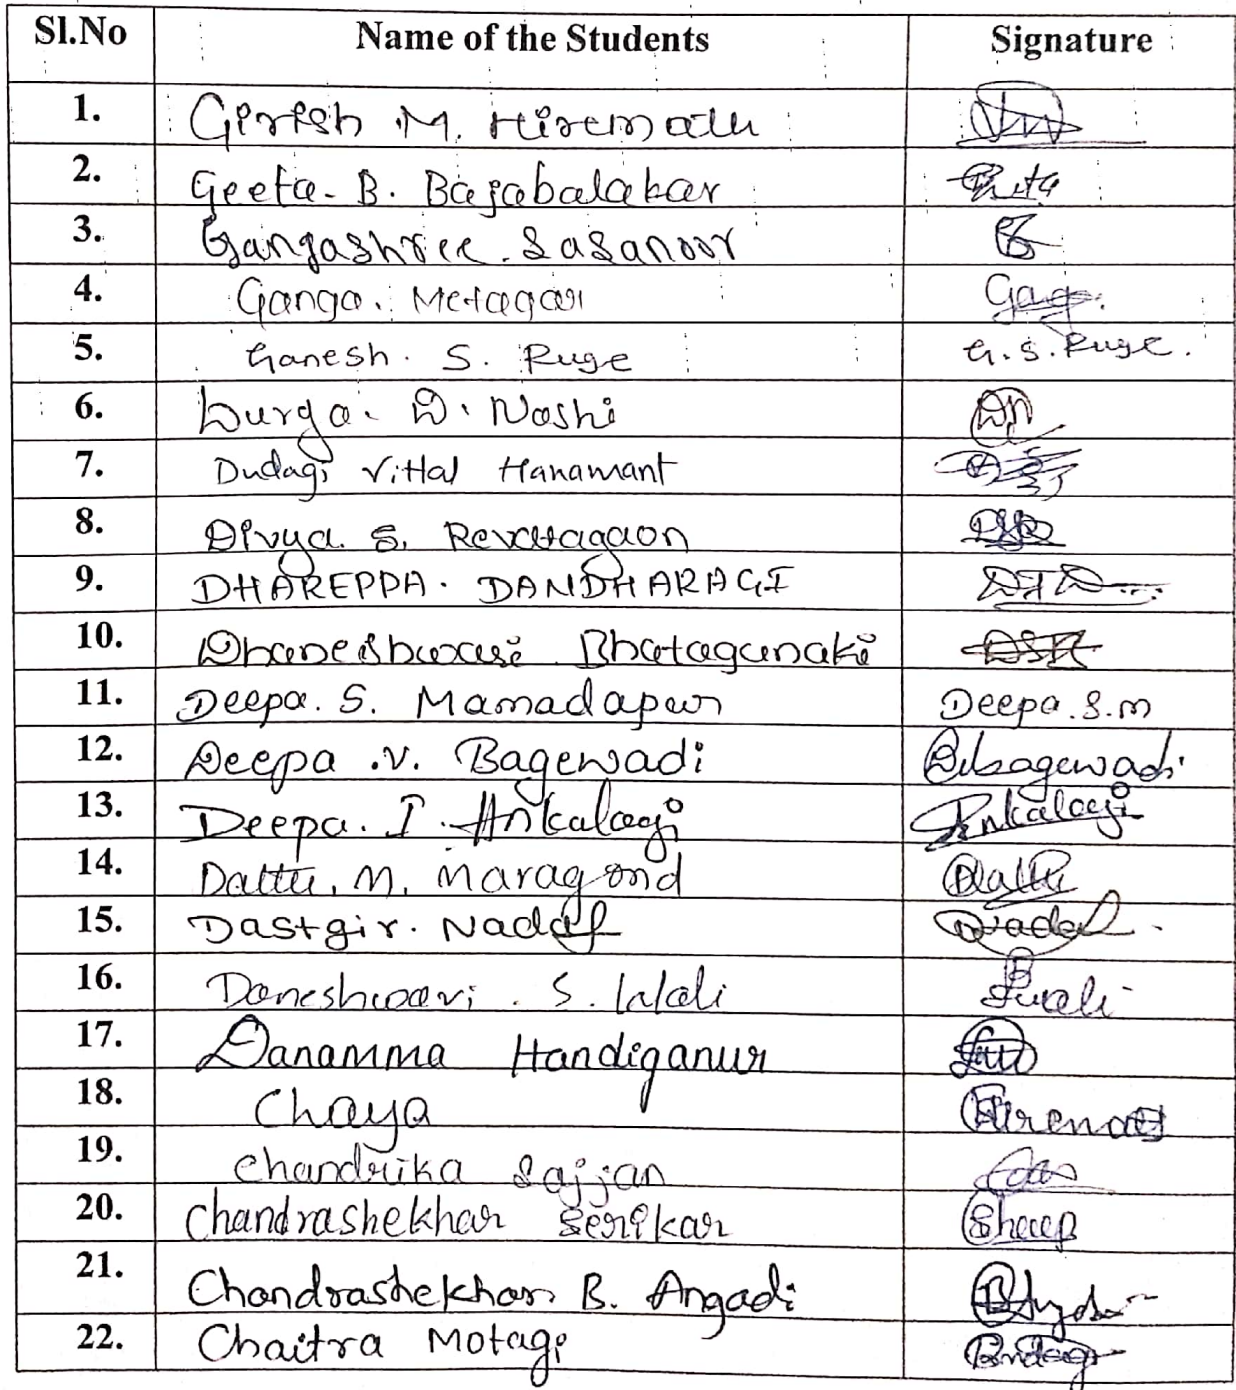 Sl.No Name of the Students Signature
1. Girish .M. Hiremath
2. Geeta. B. Bajabalakar
3. Gangashree. Sasanoor
4. Ganga. Metagari Gag
5. Ganesh. S. Ruge G.S.Ruge.
6. Durga. D. Nashi DN
7. Dudagi Vittal Hanamant
8. Divya. S. Revatagaon DSR
9. DHAREPPA. DANDHARAGI
10. Dhaneshwari Bhatagunaki DSB
11. Deepa. S. Mamadapur Deepa.S.m
12. Deepa .V. Bagewadi Bagewadi
13. Deepa. I. Ankalagi Ankalagi
14. Dattu. M. Maragond Dattu
15. Dastgir. Nadaf Nadaf
16. Daneshwari. S. Walali
17. Danamma Handiganur
18. Chaya
19. Chandrika Sajjan
20. Chandrashekhar Serikar
21. Chandrashekhar B. Angadi
22. Chaitra Motagi